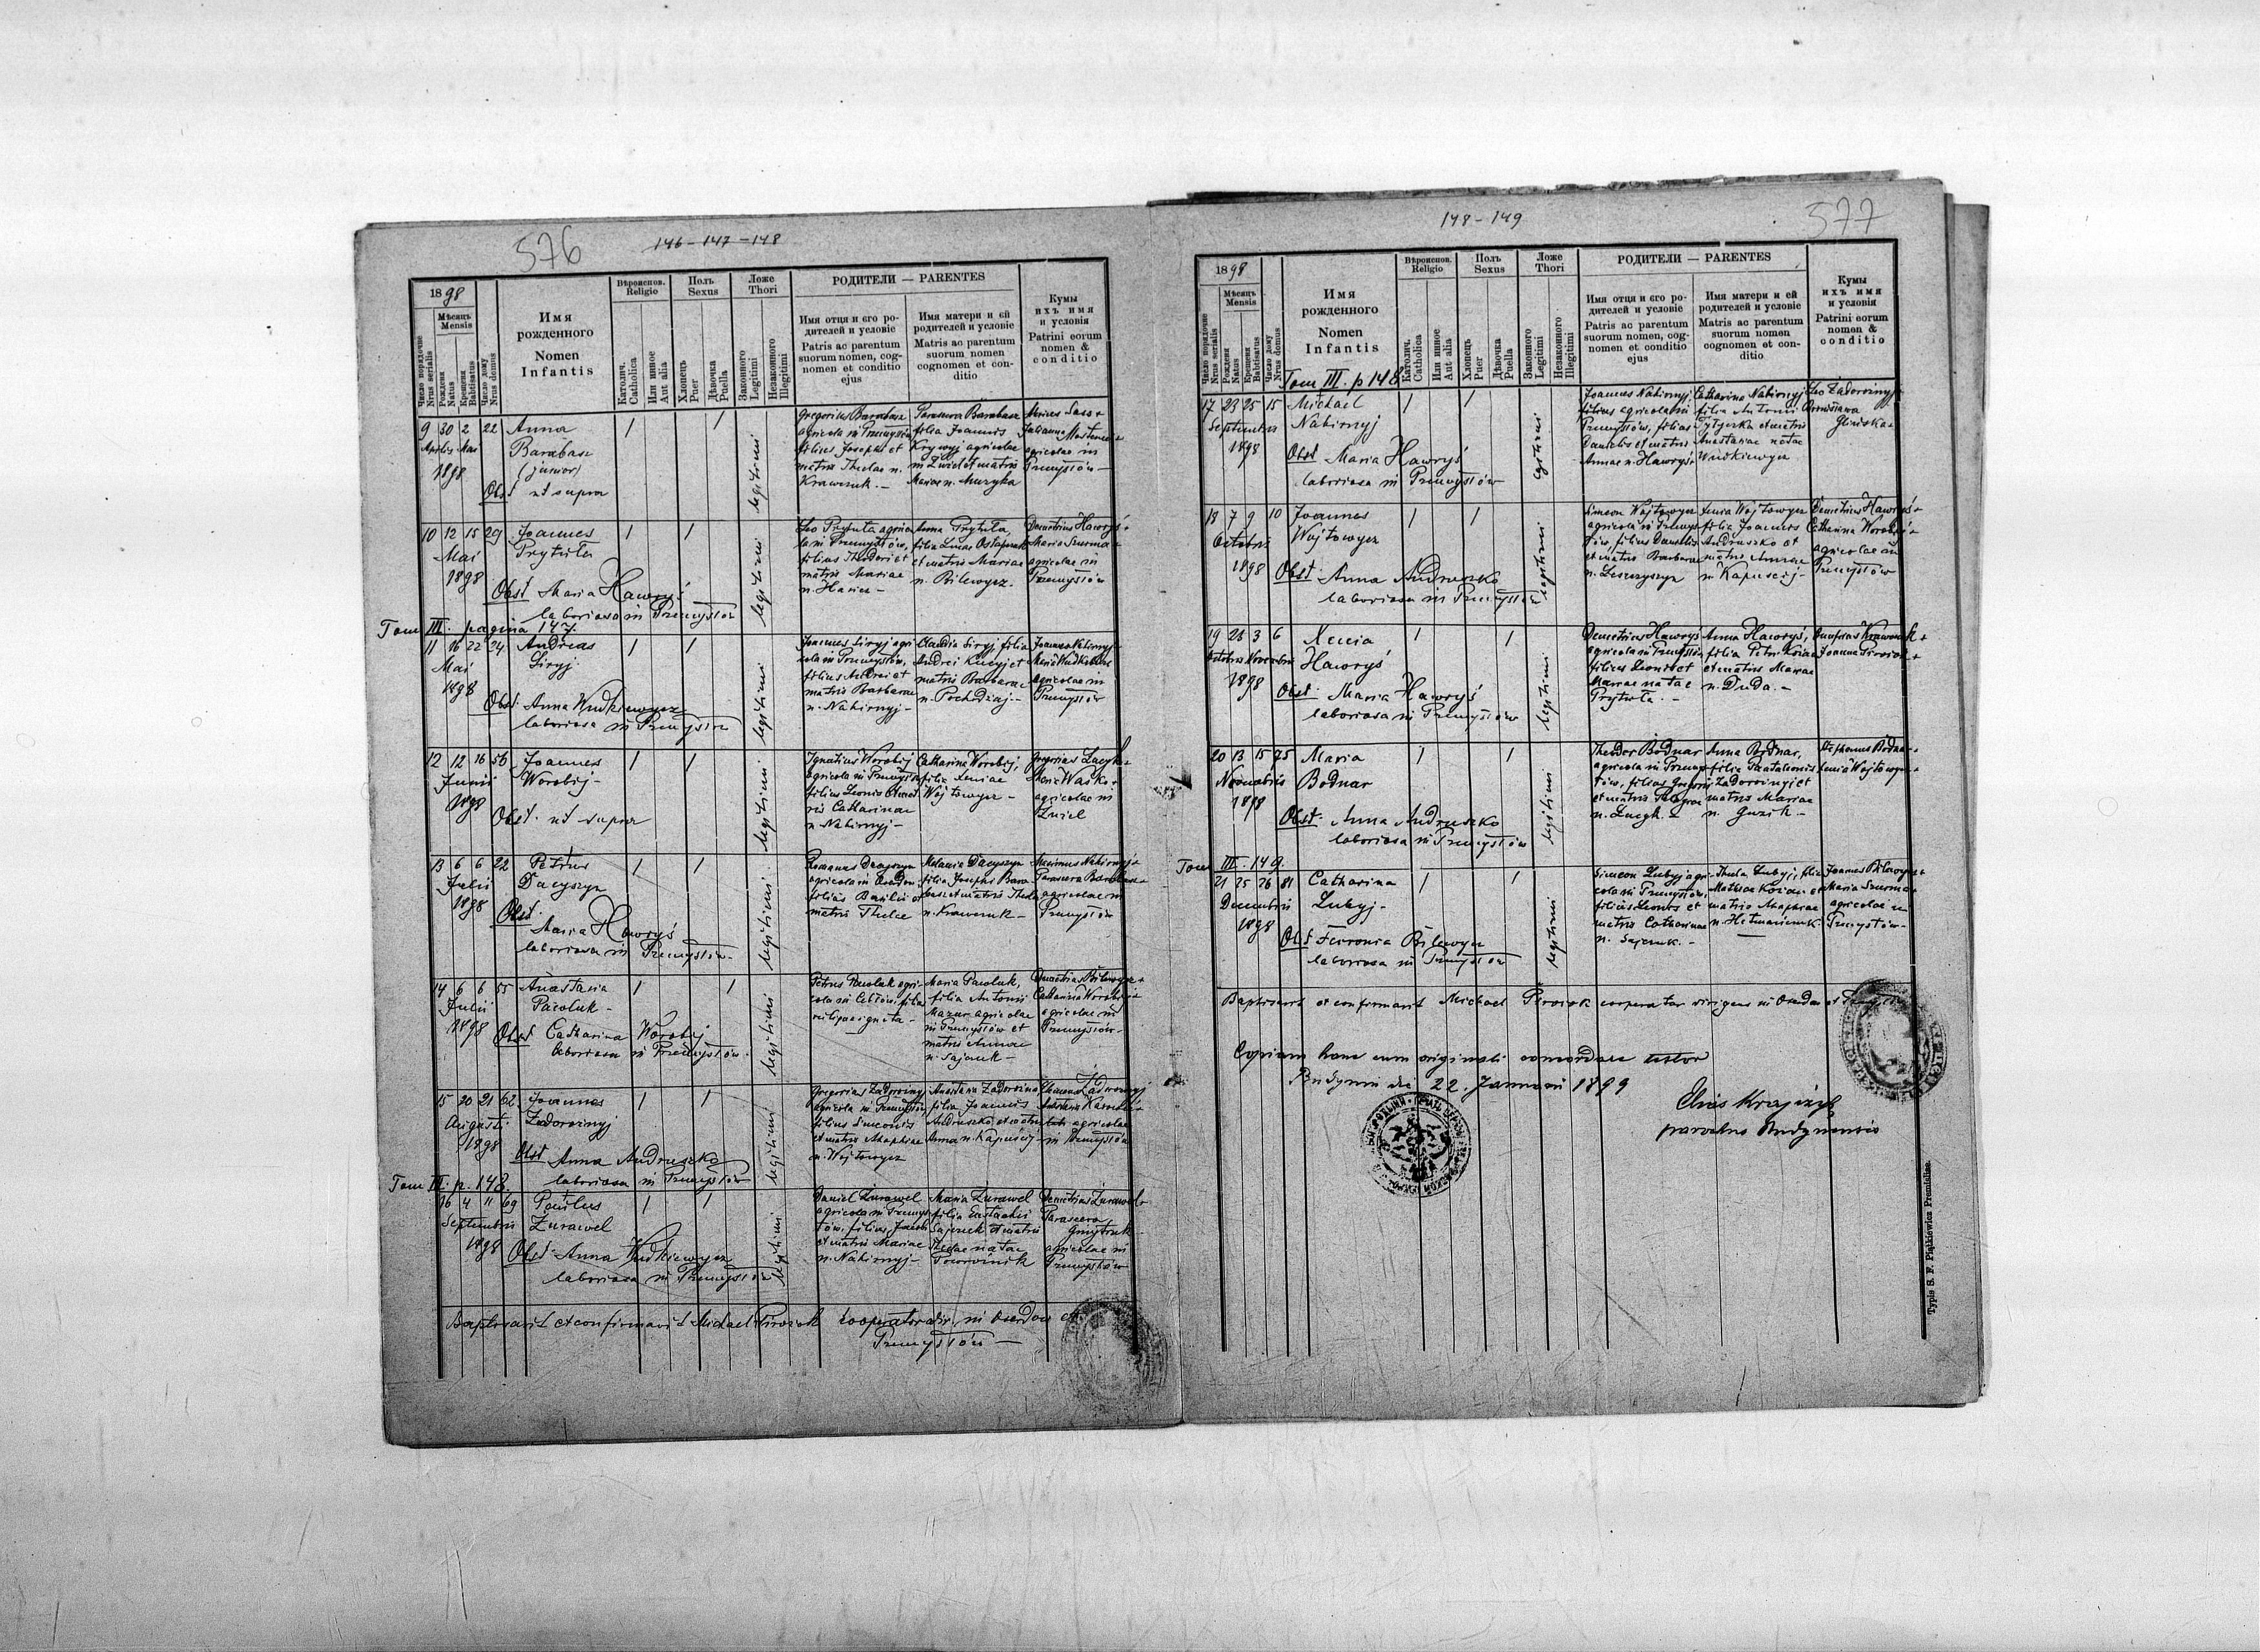 576
146-147-148
1898
Мѣсяцъ
Mensis
Число порядочне
Nrus serialis
Рожденя
Natus
Крещеня
Babtisatus
Число дому
Nrus domus
Имя
рожденного
Nomen
Infantis
Вѣроиспов.
Religio
Католич.
Catholica
Или инное
Aut alia
Полъ
Sexus
Хлопець
Puer
Дѣвочка
Puella
Ложе
Thori
Законного
Legitimi
Незаконного
Illegitimi
РОДИТЕЛИ — PARENTES
Имя отця и єго ро-
дителей и условіє
Patris ac parentum
suorum nomen, cog-
nomen et conditio
ejus
Имя матери и єй
родителей и условіє
Matris ac parentum
suorum nomen
cognomen et con-
ditio
Кумы
ихъ имя
и условія
Patrini eorum
nomen &
conditio
9 30 2 22 Anna
Aprilis Mai Barabasz
1898 (junior)
Obst ut supra
legitimi
Gregorius Barabasz
agricola in Przemysłów
filius Josephi et
matris Theclae n.
Krawczuk. -
Parascera Barabasz
filia Joannis
Krywyj agricolae
in Żwiet matris
Mariae n. Muzyka
agricolae in
Przemysłów -
10 12 15 29 Joannes
Mai Prytuła
1898
Obst Maria Hawryś
laboriosa in Przemysłów
legitimi
Leo Prytuła agrico-
la in Przemysłów,
filius Theodori et
matris Mariae
Anna Prytuła,
filia Lucae Ostapczuk
et matris Mariae
n. Bilewycz.
Demetrius Hawryś +
Maria Szurma +
agricolae in
Przemysłów
Tom III. pagina 147.
11 16 22 24 Andreas
Mai Siryj
1898
Obst. Anna Wudkiewycz
laboriosa in Przemysłów
legitimi
Joannes Siryj agri-
cola in Przemysłów,
filius Andrei et
matris Barbarae
n. Nahirnyj -
Claudia Siryj filia
Andrei Kucyj et
matris Barbarae
Joannes Nahirnyj
Maria Wudkiewicz
agricolae in
Przemysłów
12 12 16 56 Joannes
Junii Worobij -
1898
Obst. ut supra
legitimi
Ignatius Worobij
agricola in Przemysłów
filius Leonis et mat-
ris Catharinae
n. Nahirnyj -
Catharina Worobij,
filia Xeniae
Wojtowycz -
Gregorius Lacyk +
Maria Waśko +
agricolae in
Żniel
13 6 6 22 Petrus
Julii Dacyszyn
1898 Obst.
Maria Hawryś
laboriosa in Przemysłów -
legitimi
Romanus Dacyszyn
agricola in Oserdow
filius Basilii et
matris Theclae
Melania Dacyszyn
filia Josephi Bara-
basz et matris Theclae
n. Krawczuk -
Maximus Nahirnyj +
Parascera Barabasz +
agricolae in
Przemysłów
14 6 6 55 Anastasia
Julii Pawluk -
1898 Obst Catharina Worobij
laboriosa in Przemysłów.
legitimi
Petrus Pawluk agri-
cola in Cebłów, filius
Maria Pawluk,
filia Antonii
Mazur agricolae
in Przemysłów et
matris Annae
n. Sajczuk -
Demetrius Bilewycz +
Catharina Worobij +
agricolae in
Przemysłów -
15 20 21 62 Joannes
Augusti Zadoroznyj
1898
Obst Anna Andruszko
laboriosa in Przemysłów
legitimi
Gregorius Zadoroznyj
agricola in Przemysłów
filius Simeonis
et matris Agaphiae
n. Wojtowycz
Anastasia Zadorozna
filia Joannis
Andruszko et matris
Anna n. Kapuścij -
agricolae
in Przemysłów
Tom III. p. 148.
16 4 11 69 Paulus
Septembris Żurawel
1898 Obst. Anna Wudkiewycz
laboriosa in Przemysłów
legitimi
Daniel Żurawel
agricola in Przemys-
łów, filius Jacobi
et matris Mariae
n. Nahirnyj -
Maria Żurawel
filia Eustachii
Sajczuk et matris
Theclae natae
Demetrius Żurawel +
Parascera
Gmytruk
agricolae in
Przemysłów
Baptisavit et confirmavit Michael Pirożok cooperator dir. in Oserdow et
Przemysłów -
148-149
577
1898
Мѣсяцъ
Mensis
Число порядочне
Nrus serialis
Рожденя
Natus
Крещеня
Babtisatus
Число дому
Nrus domus
Имя
рожденного
Nomen
Infantis
Вѣроиспов.
Religio
Католич.
Catholica
Или инное
Aut alia
Полъ
Sexus
Хлопець
Puer
Дѣвочка
Puella
Ложе
Thori
Законного
Legitimi
Незаконного
Illegitimi
РОДИТЕЛИ — PARENTES
Имя отця и єго ро-
дителей и условіє
Patris ac parentum
suorum nomen, cog-
nomen et conditio
ejus
Имя матери и єй
родителей и условіє
Matris ac parentum
suorum nomen
cognomen et con-
ditio
Кумы
ихъ имя
и условія
Patrini eorum
nomen &
conditio
Tom III. p 148
17 23 25 15 Michael
Septembris Nahirnyj
1898
Obst Maria Hawryś
laboriosa in Przemysłów
legitimi
Joannes Nahirnyj,
filius agricola in
Przemysłów, filius
Danielis et matris
Annae n. Hawryś
Catharina Nahirnyj
filia Antonii
et matris
Anastasiae natae
Wudkiewycz
Leo Zadoroznyj
Glinska +
18 7 9 10 Joannes
Octobris Wojtowycz
1898
Obst. Anna Andruszko
laboriosa in Przemysłów
legitimi
Simeon Wojtowycz
agricola in Przemys-
łów, filius Danielis
et matris Barbarae
n. Leszczyszyn
Xenia Wojtowycz
filia Joannis
Andruszko et
matris Annae
n. Kapuścij -
Demetrius Hawryś +
Catharina Worobij +
agricolae in
Przemysłów
19 28 3 6 Xenia
Octobris Novembris Hawryś
1898
Obst. Maria Hawryś
laboriosa in Przemysłów
legitimi
Demetrius Hawryś
agricola in Przemysłów
filius Leonis et
Mariae natae
Prytuła. -
Anna Hawryś,
filia Petri Koza
et matris Mariae
n. Duda. -
Onufrius Krawczuk +
Joanna Pirożok +
20 13 15 75 Maria
Novembris Bodnar
1898
Obst. Anna Andruszko
laboriosa in Przemysłów
legitimi
Theodor Bodnar
agricola in Przemys-
łów, filius Gregorii
et matris Pelagiae
n. Lacyk -
Anna Bodnar,
filia Pantaleonis
Zadoroznyj et
matris Mariae
n. Guzik -
Stephanus Bodnar +
Xenia Wojtowycz +
Tom III. 149.
21 25 26 81 Catharina
Decembris Lubyj -
1898
Obst Fevronia Bilewycz
laboriosa in Przemysłów
legitimi
Simeon Lubyj agri-
cola in Przemysłów,
filius Leonis et
matris Catharinae
n. Sajczuk. -
Thecla Lubyj, filia
Mathiae Koza et
matris Agaphiae
n. Hetmańczuk.
Joannes Bilewycz +
Maria Szurma +
agricolae in
Przemysłów -
Baptisavit et confirmavit Michael Pirożok cooperator dirigens in Oserdow et
Copiam hanc cum originali concordare testor
Budynin die 22. Januarii 1899
Elias Krajczyk
parochus Budynensis
Typis S. F. Piątkiewicz Premisliae.